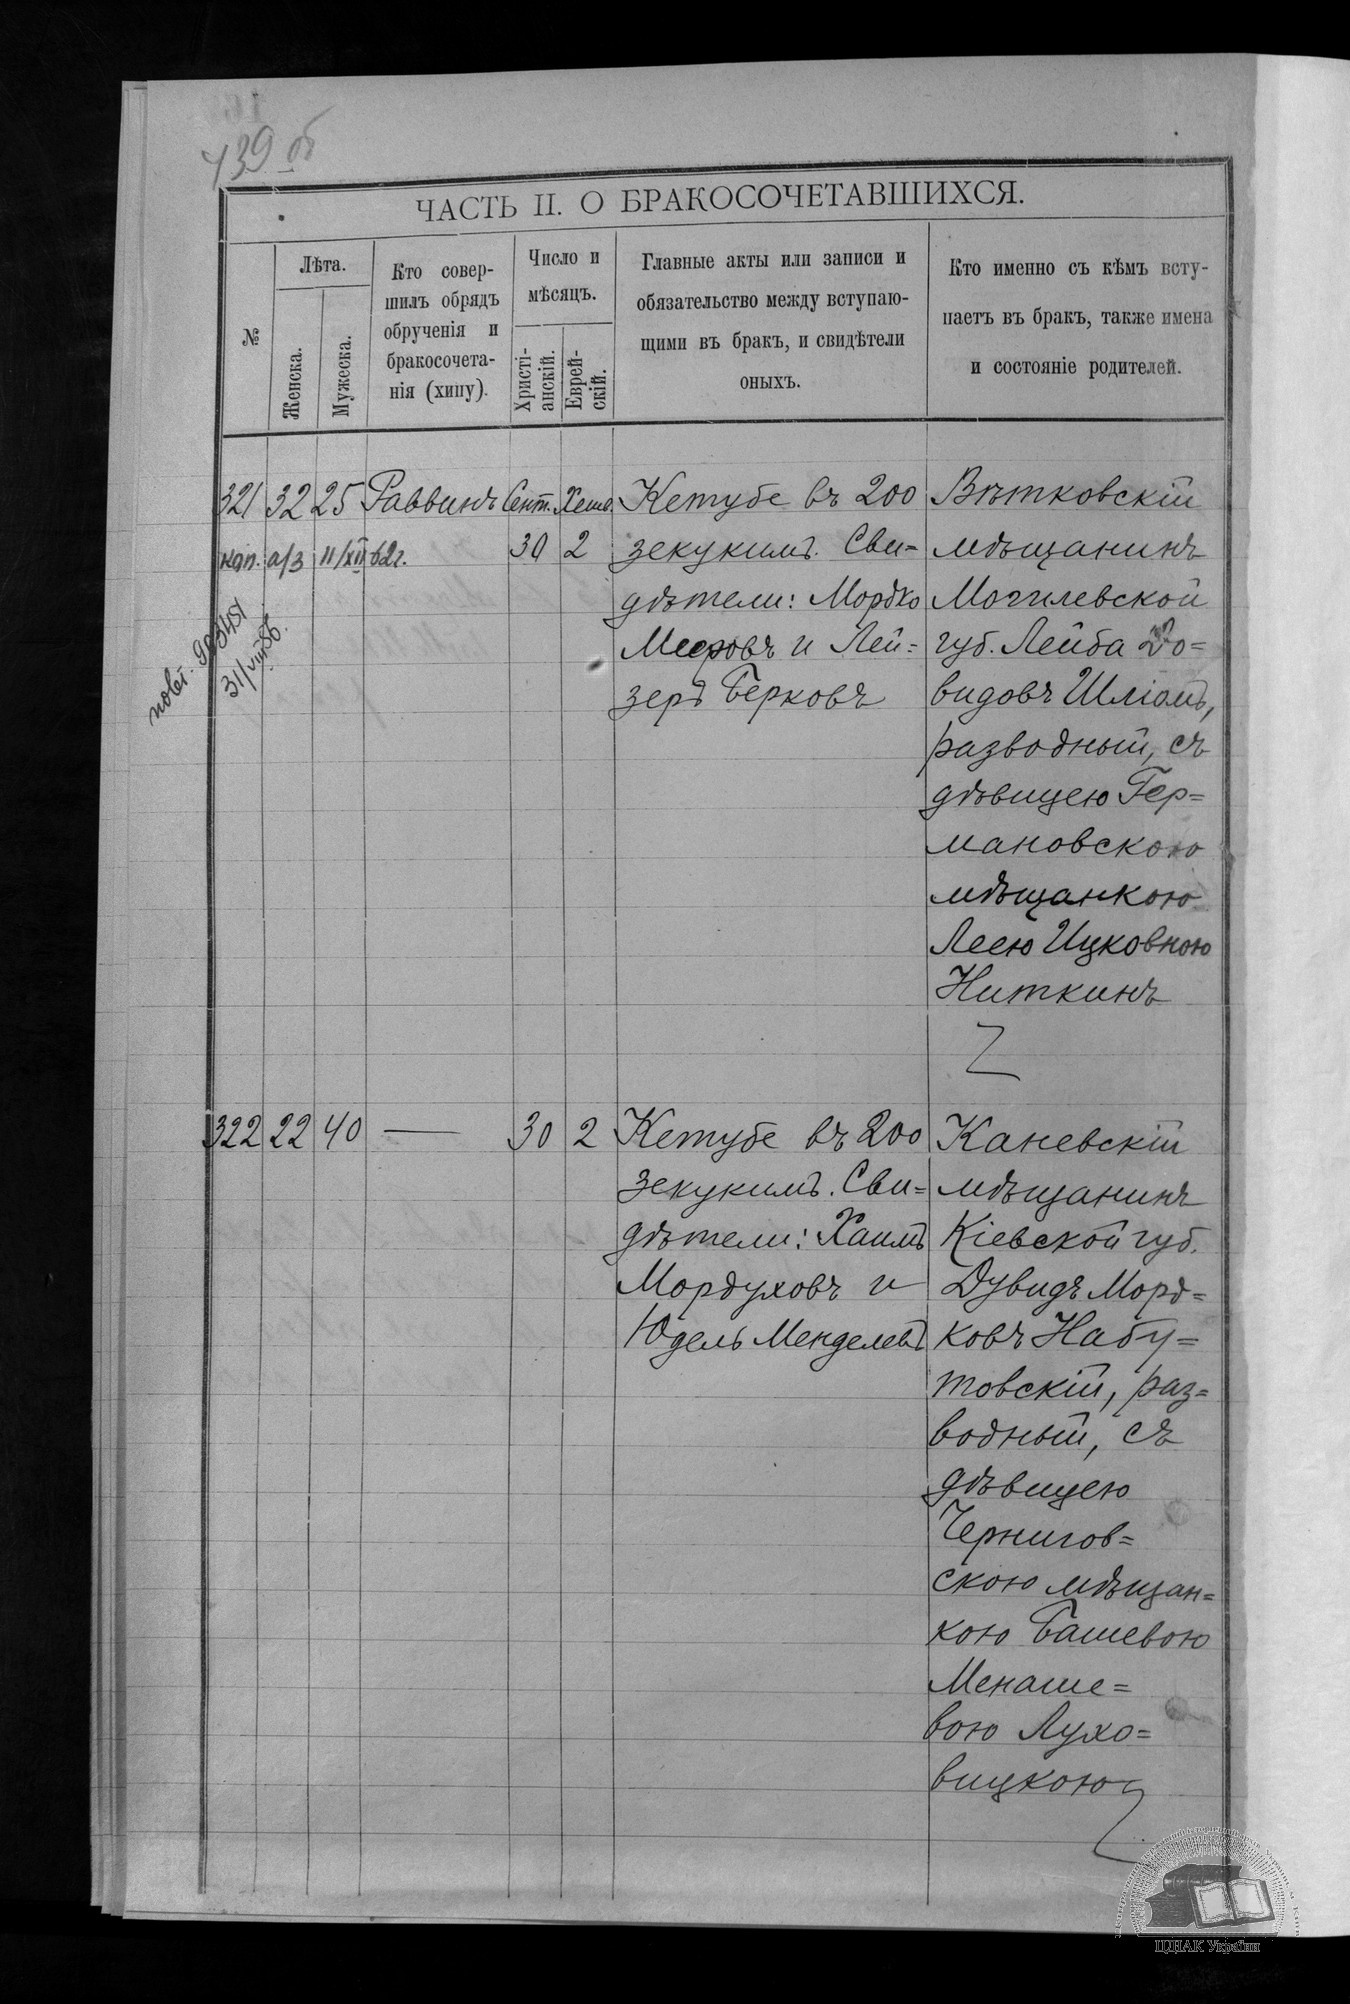 439 об
ЧАСТЬ II. О БРАКОСОЧЕТАВШИХСЯ.
№
Лѣта.
Женска.
Мужеска.
Кто совер-
шилъ обрядъ
обрученія и
бракосочета-
нія (хипу).
Число и
мѣсяцъ.
Христі-
анскій.
Еврей-
скій.
Главные акты или записи и
обязательство между вступаю-
щими въ бракъ, и свидѣтели
оныхъ.
Кто именно съ кѣмъ всту-
паетъ въ бракъ, также имена
и состояніе родителей.
321 32 25 Раввинъ Сент. Хешв.
30 2
коп. а/з 11/XII 62г.
повт.
31/VIII 86.
Кетубе въ 200
зекукимъ. Сви=
дѣтели: Мордко
Мееровъ и Лей=
зеръ Берковъ
Вѣтковскій
мѣщанинъ
Могилевской
губ. Лейба До=
видовъ Шліомъ,
разводный, съ
дѣвицею Гер=
мановскою
мѣщанкою
Леею Ицковною
Ниткинъ
322 22 40 — 30 2
Кетубе въ 200
зекукимъ. Сви=
дѣтели: Хаимъ
Мордуховъ и
Юдель Менделевъ
Каневскій
мѣщанинъ
Кіевской губ.
Дувидъ Морд=
ковъ Набу=
товскій, раз=
водный, съ
дѣвицею
Чернигов=
скою мѣщан=
кою Башевою
Менаше=
вою Лухо=
вицкою
ЦДІАК України